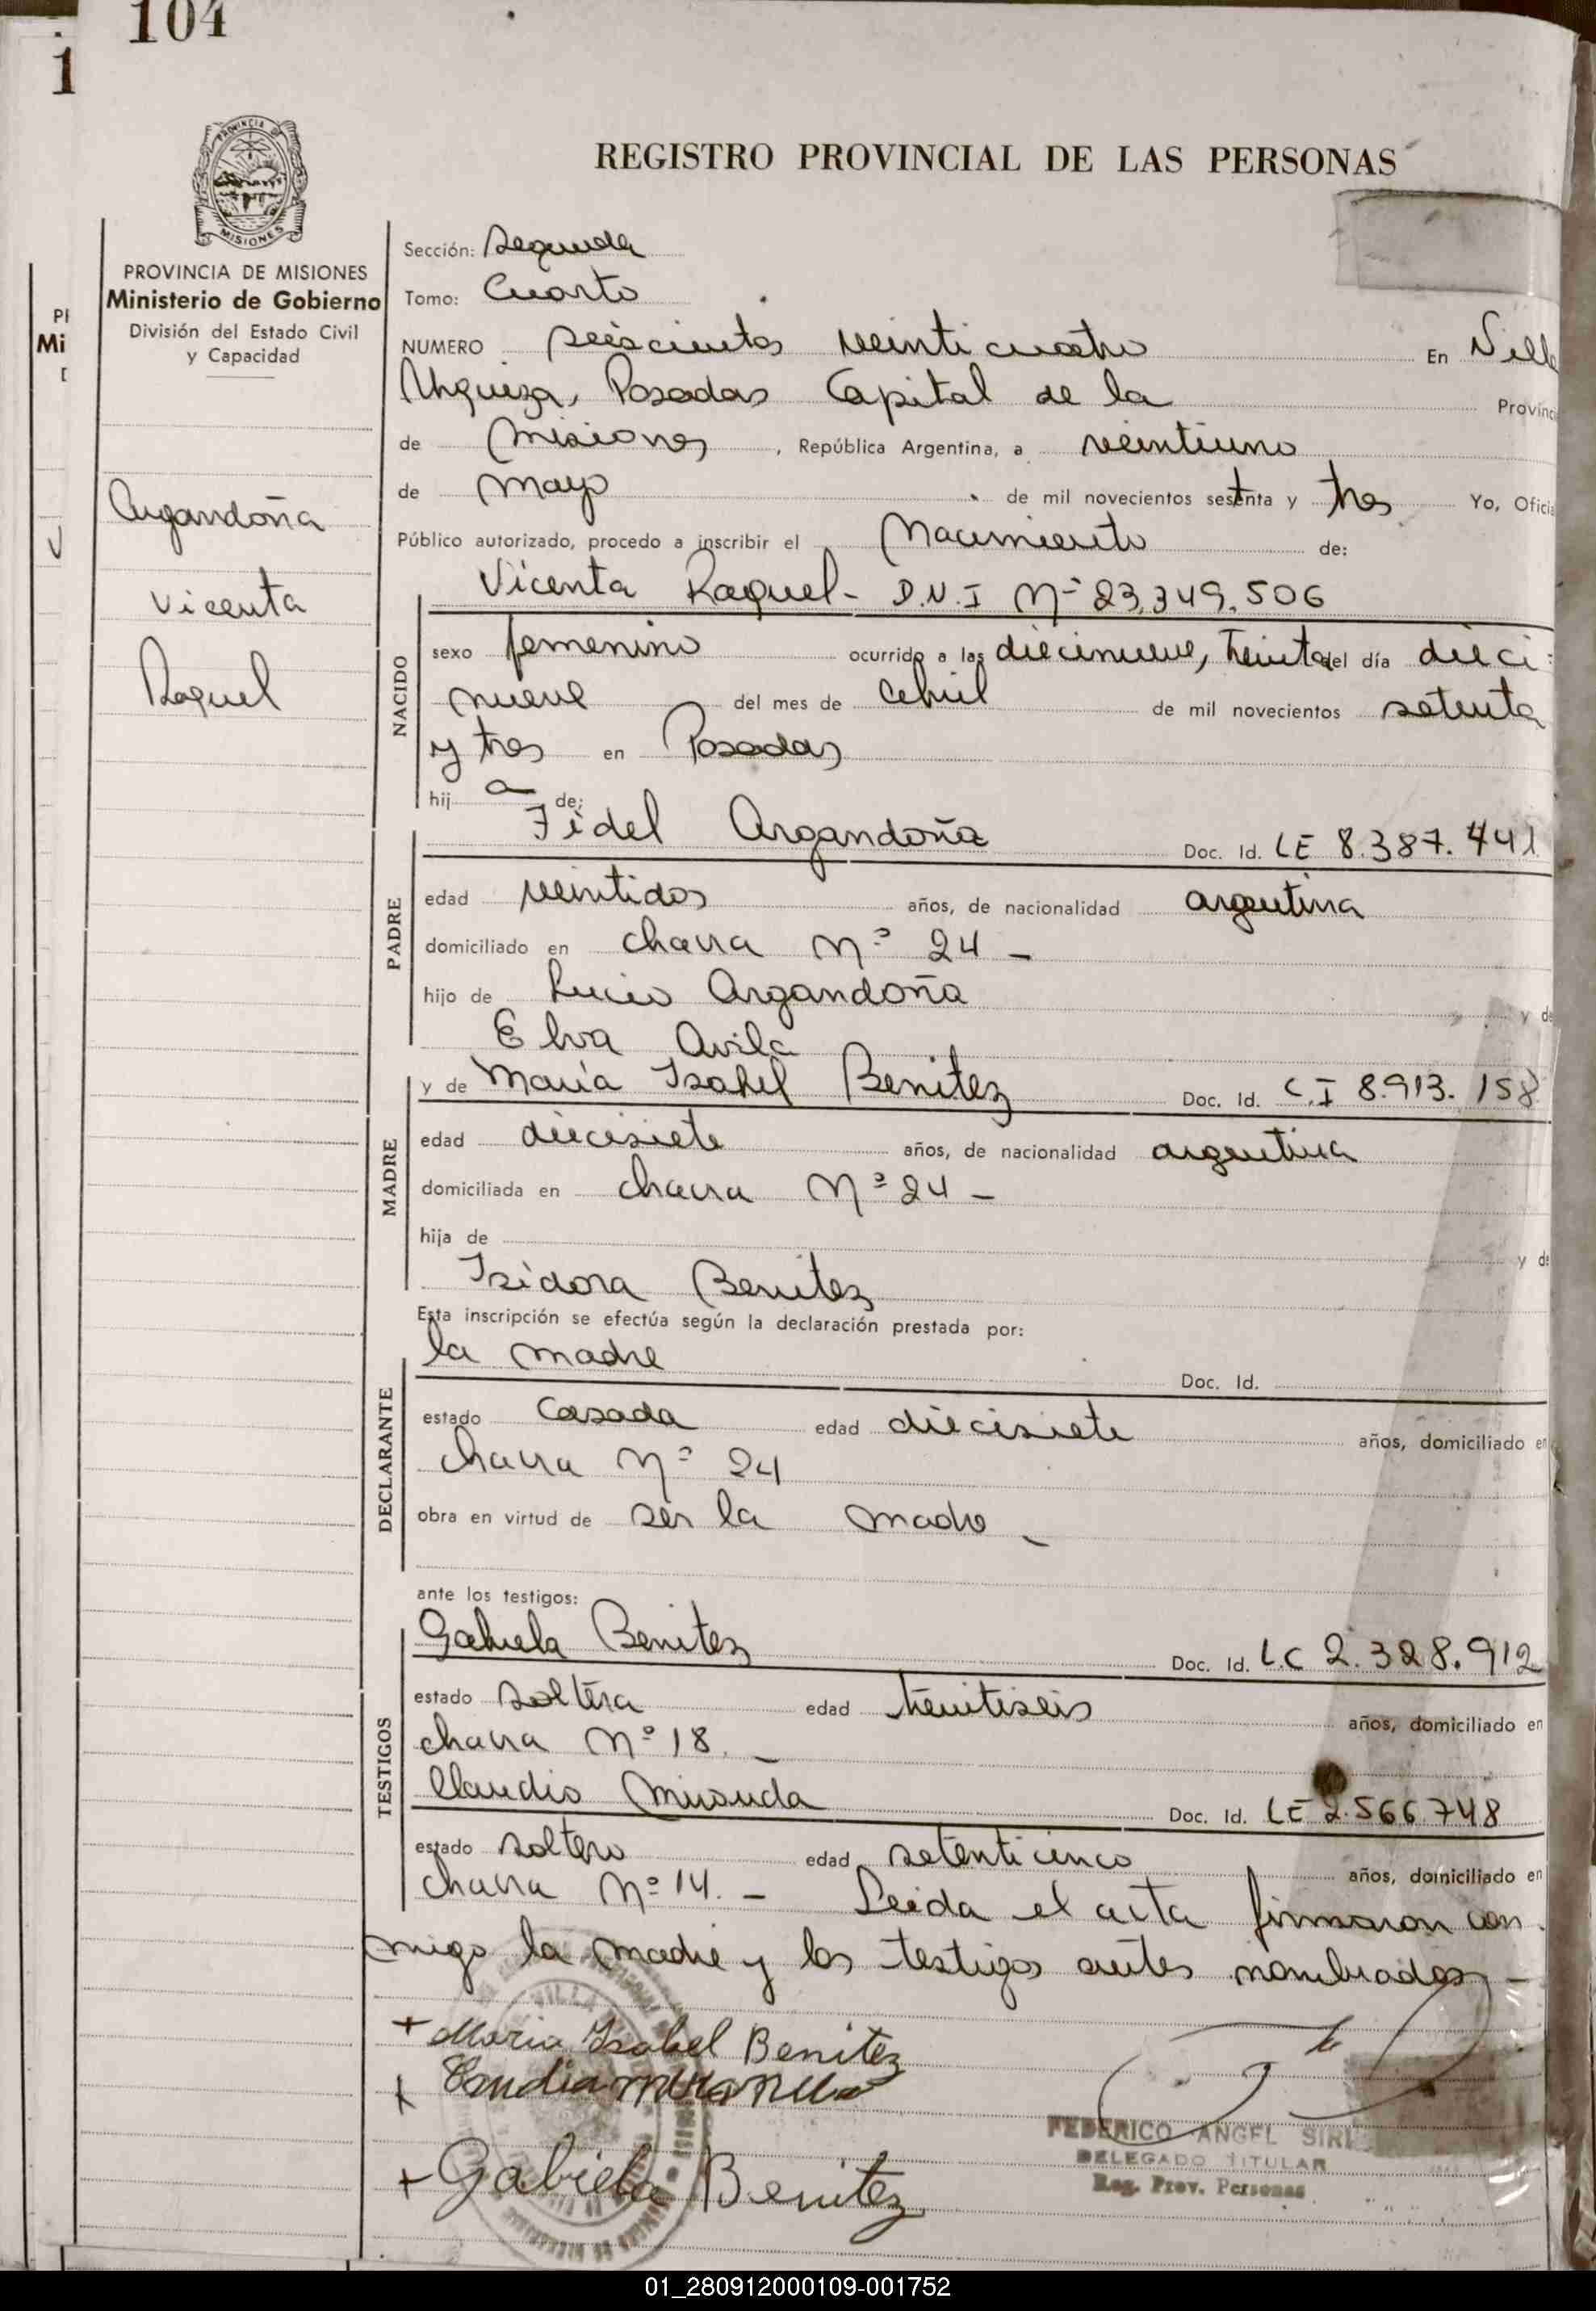 104
1
REGISTRO PROVINCIAL DE LAS PERSONAS
PROVINCIA DE
MISIONES
PROVINCIA DE MISIONES
Ministerio de Gobierno
División del Estado Civil
y Capacidad
Pl
Mi
Argandoña
Vicenta
Raquel
Sección: Segunda
Tomo: Cuarto
NUMERO seiscientos veinticuatro En Villa
Urquiza, Posadas Capital de la Provinc
de Misiones, República Argentina, a veintiuno
de mayo de mil novecientos setenta y tres Yo, Oficia
Público autorizado, procedo a inscribir el Nacimiento de:
Vicenta Raquel - D.N.I Nº 23.349.506
NACIDO
sexo femenino ocurrido a las diecinueve, treinta del día dieci-
nueve del mes de abril de mil novecientos setenta
y tres en Posadas
hij a de:
Fidel Argandoña Doc. Id. LE 8.387.441
PADRE
edad veintidos años, de nacionalidad argentina
domiciliado en chacra Nº 24 -
hijo de Lucio Argandoña y de
Elva Avila
y de María Isabel Benitez Doc. Id. C.I 8.913.158
MADRE
edad diecisiete años, de nacionalidad argentina
domiciliada en chacra Nº 24 -
hija de y de
Isidora Benitez
Esta inscripción se efectúa según la declaración prestada por:
la madre Doc. Id.
DECLARANTE
estado Casada edad diecisiete años, domiciliado en
chacra Nº 24
obra en virtud de ser la madre -
ante los testigos:
Gabriela Benitez Doc. Id. L.C 2.328.912
TESTIGOS
estado soltera edad treintiseis años, domiciliado en
chacra Nº 18. -
Claudio Miranda Doc. Id. LE 2.566.748
estado soltero edad setenticinco años, domiciliado en
chacra Nº 14. - Leida el acta firmaron con
migo la madre y los testigos antes nombrados -
+ Maria Isabel Benitez
+ Gabiela Benitez
FEDERICO ANGEL SIRI
DELEGADO TITULAR
Reg. Prov. Personas
01_280912000109-001752